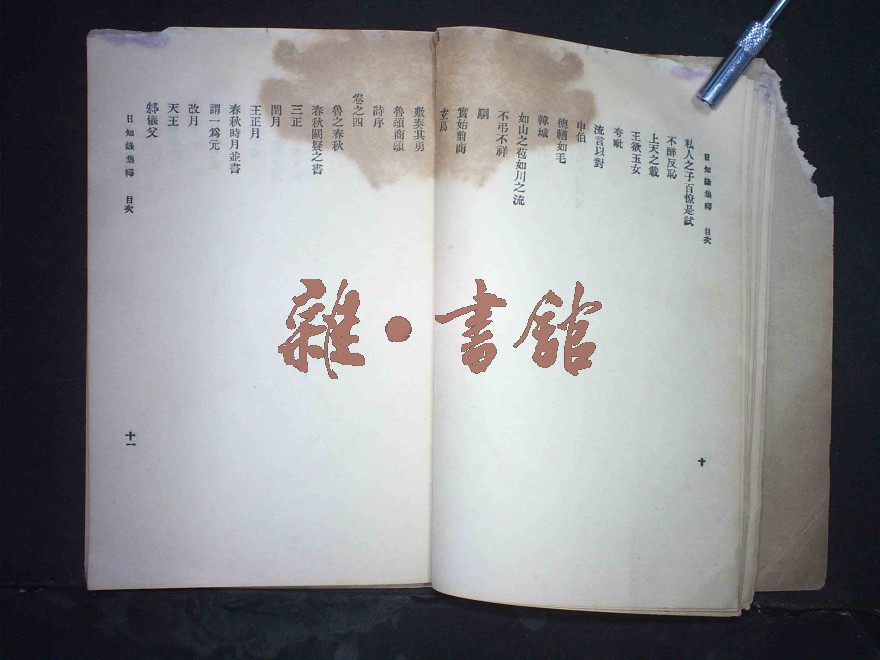 日知錄集釋 目次
私人之子百僚是試
不醉反恥
上天之載
王欲玉女
夸毗
流言以對
申伯
德輶如毛
韓城
如山之苞如川之流
不弔不祥
駉
實始翦商
玄鳥
十
敷奏其勇
魯頌商頌
詩序
卷之四
魯之春秋
春秋闕疑之書
三正
閏月
王正月
春秋時月並書
謂一為元
改月
天王
邾儀父
日知錄集釋 目次
十一
雜·書館